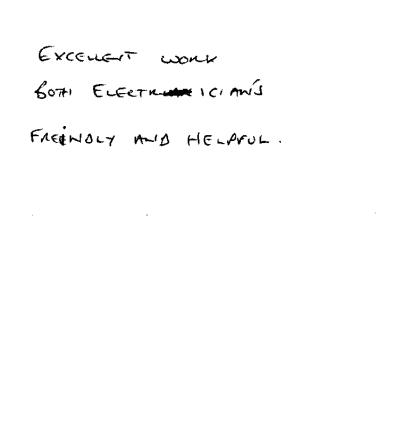 EXCELLENT WORK
BOTH ELECTRICIAN'S
FREINDLY AND HELPFUL.